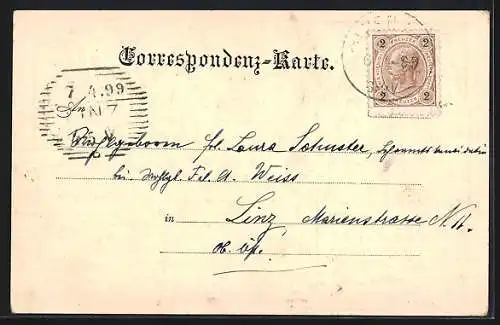 Correspondenz-Karte.
2 2
2 2
7.4.99
LINZ
An
Wohlgeboren frl. Laura Schuster,
bei Wohlgb. Frl. A. Weiss
in Linz Marienstrasse N. 11.
ob. öst.